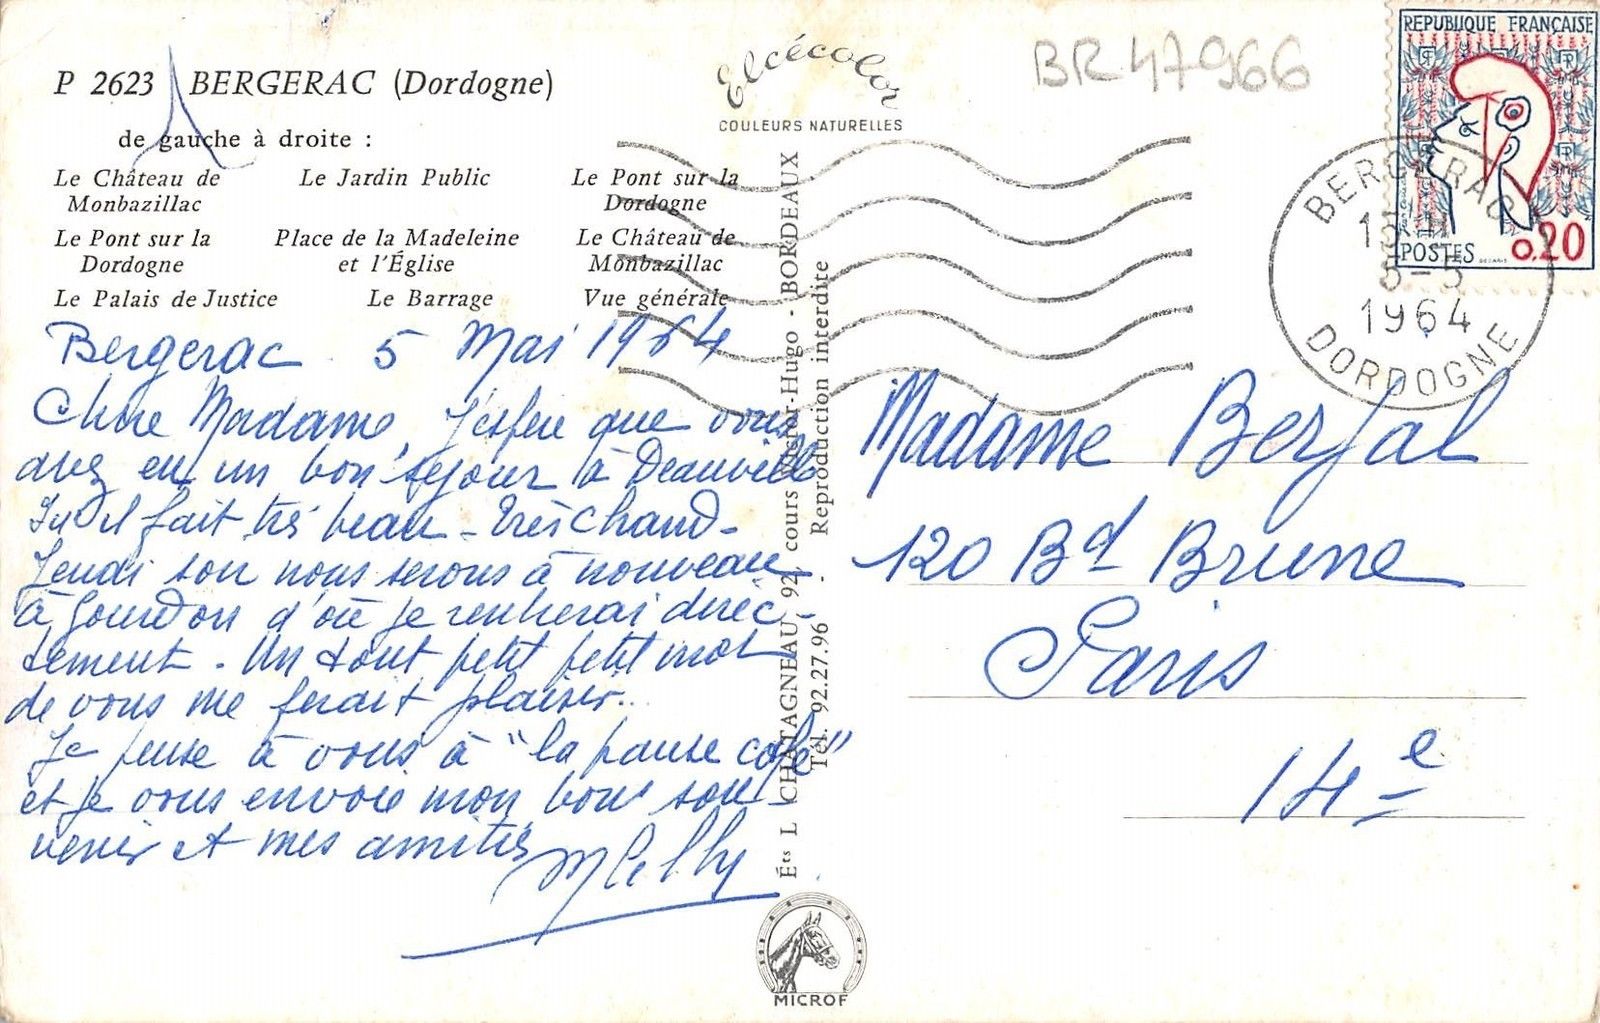 P 2623 BERGERAC (Dordogne)
de gauche à droite :
Le Château de Monbazillac
Le Jardin Public
Le Pont sur la Dordogne
Le Pont sur la Dordogne
Place de la Madeleine et l'Église
Le Château de Monbazillac
Le Palais de Justice
Le Barrage
Vue générale
Bergerac 5 Mai 1964
Chère Madame, J'espère que vous
avez eu un bon séjour à Deauville
Ici il fait très beau - Très chaud -
Jeudi soir nous serons à nouveau
à Gourdon d'où je rentrerai direc-
tement. Un tout petit petit mot
de vous me ferait plaisir..
Je pense à vous à "la pause café"
et je vous envoie mon bon sou-
venir et mes amitiés
Elcécolor
COULEURS NATURELLES
Éts L CHATAGNEAU 92, cours Victor-Hugo - BORDEAUX
Tél. 92.27.96 - Reproduction interdite
MICROF
BR 47966
REPUBLIQUE FRANÇAISE
POSTES 0.20
BERGERAC
15 H
5-5
1964
DORDOGNE
Madame Berjal
120 Bd Brune
Paris
14e